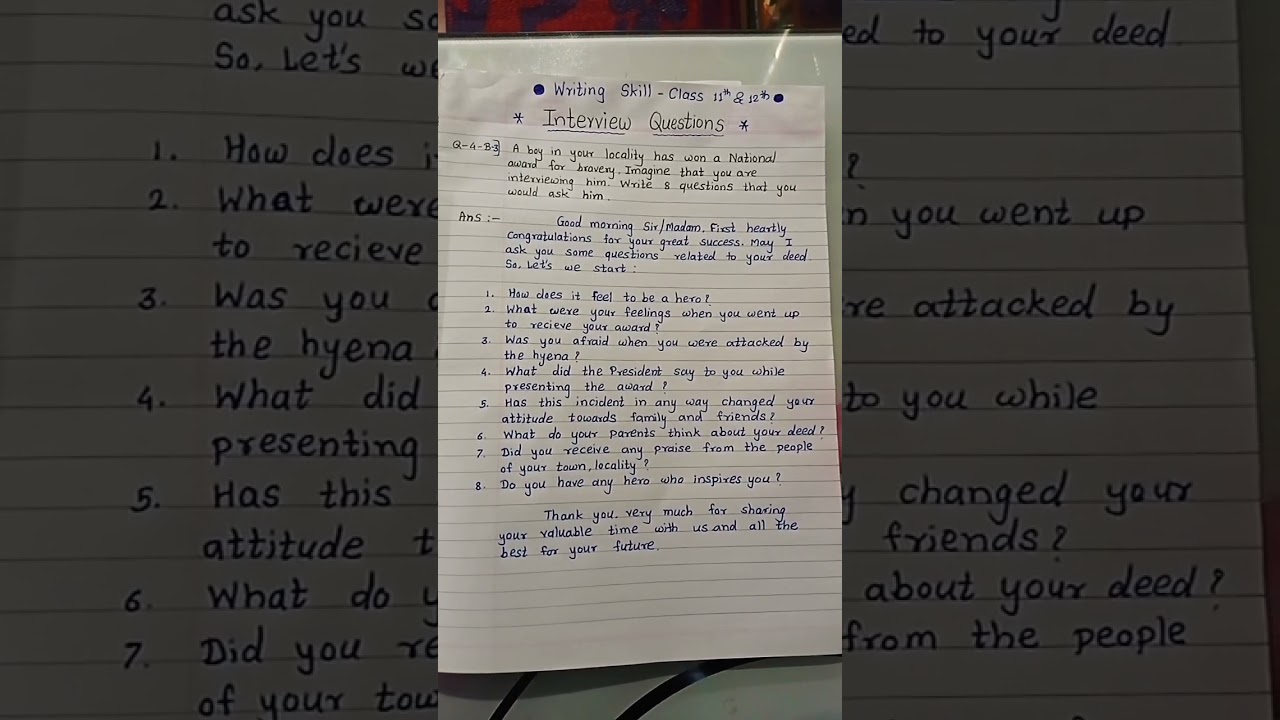 ● Writing Skill - Class 11th & 12th ●
* Interview Questions *
Q-4-B-3] A boy in your locality has won a National
award for bravery. Imagine that you are
interviewing him. Write 8 questions that you
would ask him.
Ans :- Good morning Sir/Madam. First heartly
Congratulations for your great success. May I
ask you some questions related to your deed.
So, Let's we start :
1. How does it feel to be a hero?
2. What were your feelings when you went up
to recieve your award?
3. Was you afraid when you were attacked by
the hyena?
4. What did the President say to you while
presenting the award?
5. Has this incident in any way changed your
attitude towards family and friends?
6. What do your parents think about your deed?
7. Did you receive any praise from the people
of your town, locality?
8. Do you have any hero who inspires you?
Thank you, very much for sharing
your valuable time with us and all the
best for your future.